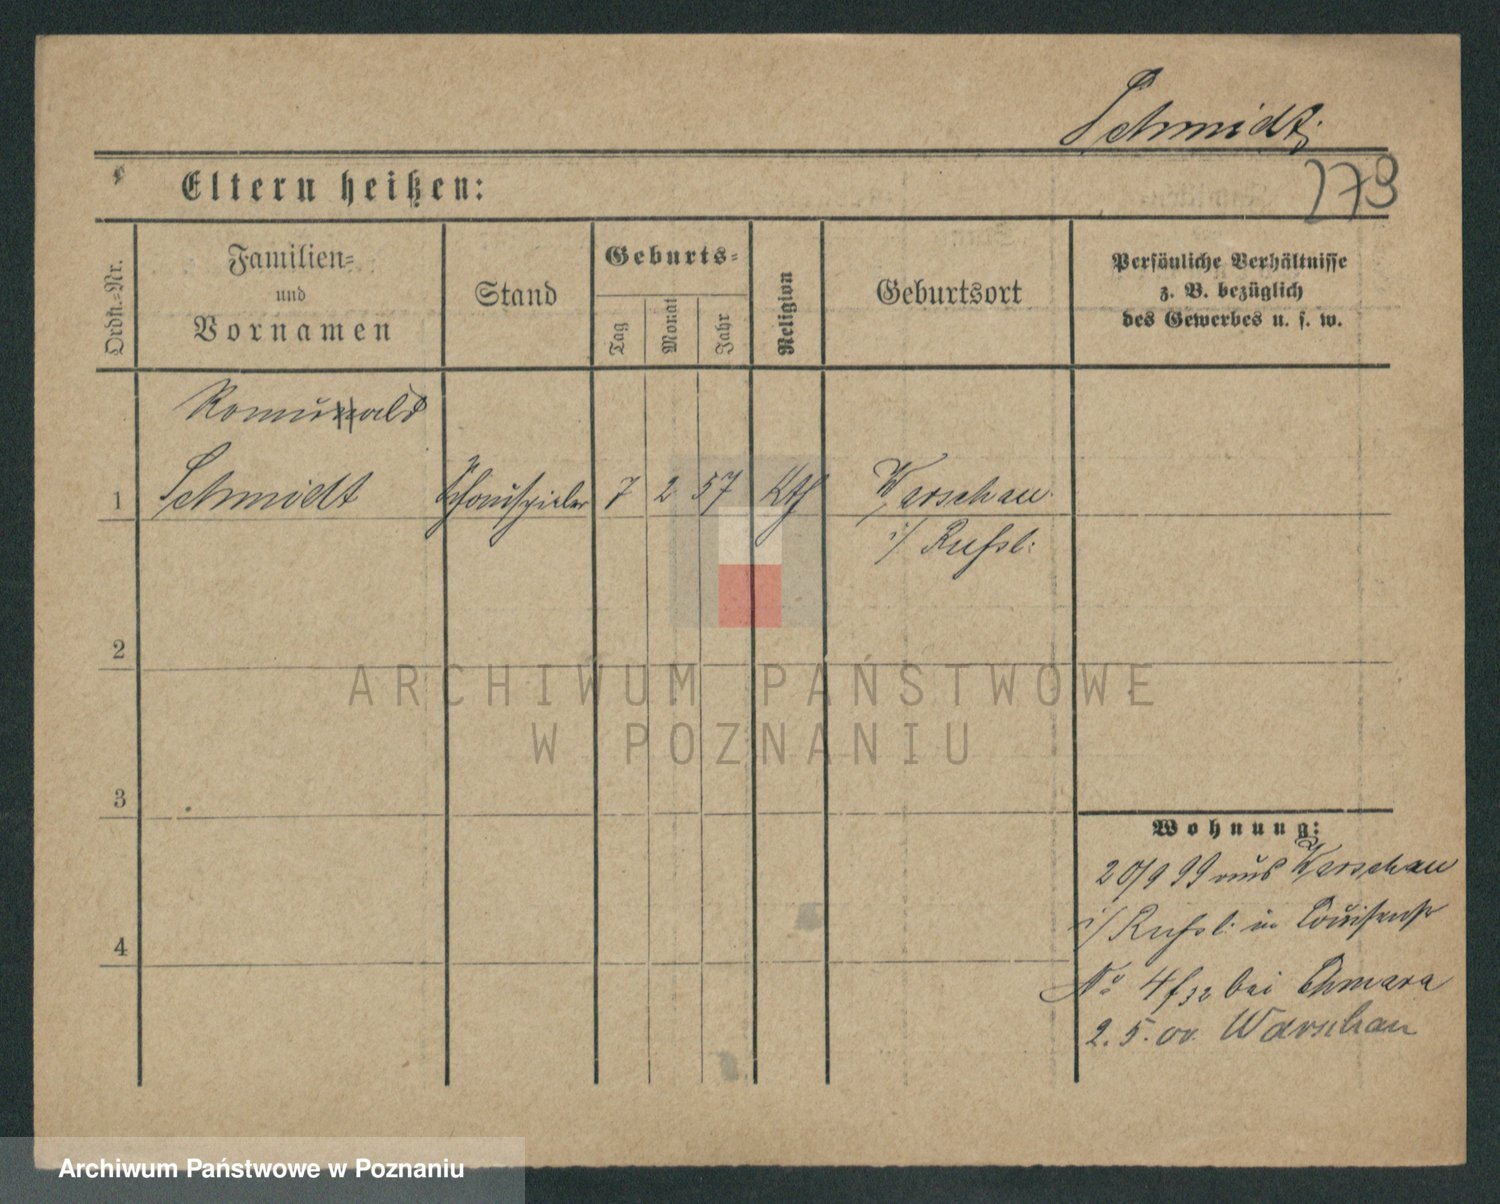 Schmidt
279
Eltern heißen:
Ordn.-Nr.
Familien-
und
Vornamen
Stand
Geburts-
Tag
Monat
Jahr
Religion
Geburtsort
Persönliche Verhältnisse
z. B. bezüglich
des Gewerbes u. s. w.
Romuald
1 Schmidt Schauspieler 7 2 57 Kth Warschau
i/ Rußl:
2
ARCHIWUM PAŃSTWOWE
W POZNANIU
3
Wohnung:
20/9 99 aus Warschau
i/ Rußl. in Louisenstr
4
No 4 bei Chmara
2.5.00. Warschau
Archiwum Państwowe w Poznaniu